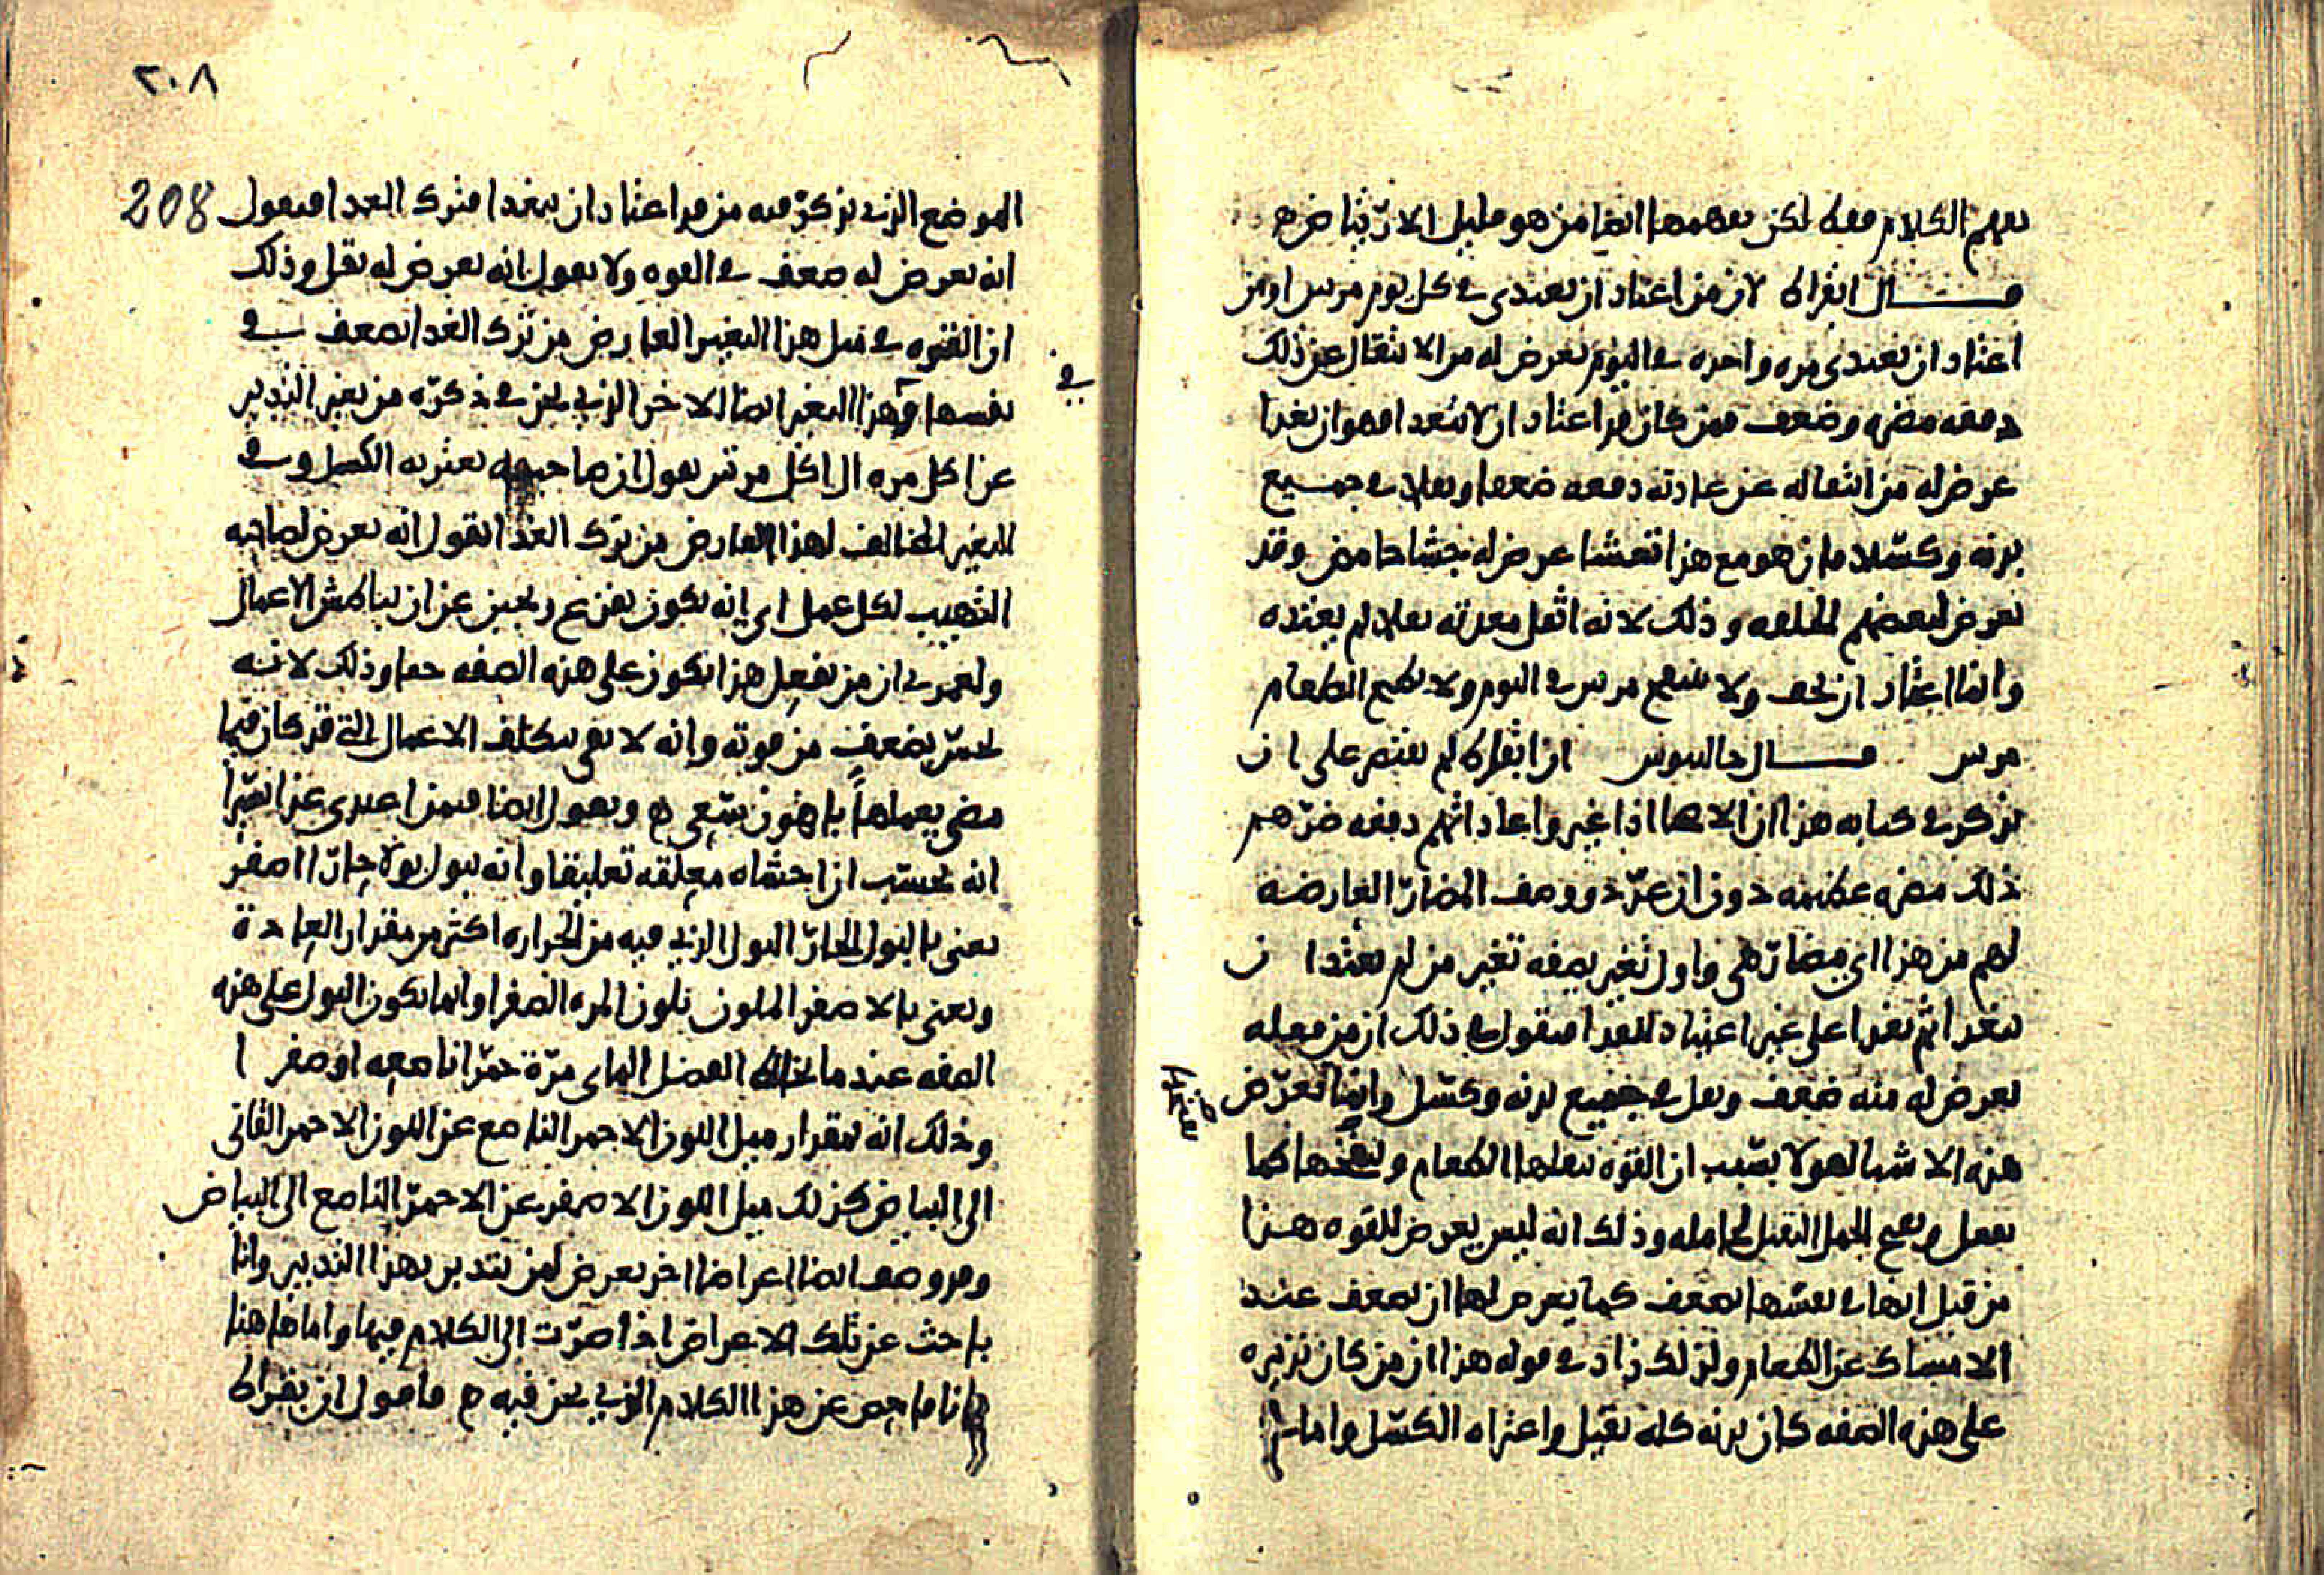 يفهم الكلام فقط لكن يفهمها ايضا من هو قليل الارتياض ه
قـــال ابقراط لان من اعتاد ان يغتدى فى كل يوم مرتين او من
اعتاد ان يغتدى مره واحده فى اليوم يعرض له من الانتقال عن ذلك
دفعه مضره وضعف فمن كان قد اعتاد ان لا يتغدا فهو ان تغدا
عرض له من انتقاله عن عادته دفعه ضعفا وثقلا فى جمـيع
بدنه وكسلا فان هو مع هذا تعشا عرض له جشا حامض وقد
يعرض لبعضهم الخلفه وذلك لانه اثقل معدته ثقلا لم يعتده
وانما اعتاد ان تخف ولا مرتين فى اليوم ولا الطعام
مرتين قـــال جالينوس ان ابقراط لم يقتصر على ان
يذكر فى كتابه هذا ان الاصحا اذا غيروا عاداتهم دفعه ضرهم
ذلك مضره عظيمه دون ان عدد ووصف المضار العارضه
لهم من هذا اى مضار هى واول تغير يصفه تغير من لم يعتد ان
يتغدا ثم تغدا على غير اعتياد للغدا فيقول فى ذلك ان من فعله
يعرض له منه ضعف وثقل فى جميع بدنه وكسل وانما تعرض
هذه الاشيا لهولا بسبب ان القوه يثقلها الطعام ويفدحها كما
يفعل الحمل الثقيل لحامله وذلك انه ليس يعرض للقوه هـذا
من قبل انها فى نفسها تضعف كما يعرض لها ان تضعف عند
الامساك عن الطعام ولذلك زاد فى قوله هذا ان من كان تدبيره
على هذه الصفه كان بدنه كله ثقيل واعتراه الكسل واما فى
٢٠٨
208
الموضع الذى يذكر فيه من قد اعتاد ان يتغدا فترك الغدا فيقول
انه يعرض له ضعف فى القوه ولا يقول انه يعرض له ثقل وذلك
ان القوه فى مثل هذا التغير العارض من ترك الغدا تضعف فى
نفسها وهذا التغير ايضا الاخر الذى نحن فى ذكره من تغير التدبير
فى
عن اكل مره الى اكل مرتين يقول ان صاحبه يعتريه الكسل وفى
التغير المخالف لهذا العارض من ترك الغدا يقول انه يعرض لصاحبه
التهيب لكل عمل اى انه يكون يفزع ويجبن عن ان يباطش الاعمال
ولعمرى ان من يفعل هذا يكون على هذه الصفه حقا وذلك لانـه
يحس بضعف من قوته وانه لا يفى بتكلف الاعمال التى قد كان فيما
مضى يعملها باهون سعى ه ويقول ايضا فيمن اغتدى غدا يسيرا
انه يحسب ان احشاه معلقه تعليقا وانه يبول بولا حارا اصفر
يعنى بالبول الحار البول الذى فيه من الحراره اكثر من مقدار العادة
ويعنى بالاصفر الملون بلون المره الصفرا وانما يكون البول على هذه
الصفه عندما يخالط الفضل الماى مرة حمرا ناصعه او صفرا
وذلك انه بمقدار ميل اللون الاحمر الناصع عن اللون الاحمر القانى
الى البياض كذلك ميل اللون الاصفر عن الاحمر الناصع الى البياض
وقد وصف ايضا اعراضا اخر تعرض لمن يتدبر بهذا التدبير وانا
باحث عن تلك الاعراض اذا صرت الى الكلام فيها واما هاهنا
فانا فاحص عن هذا الكلام الذى نحن فيه ه فاقول ان بقراط